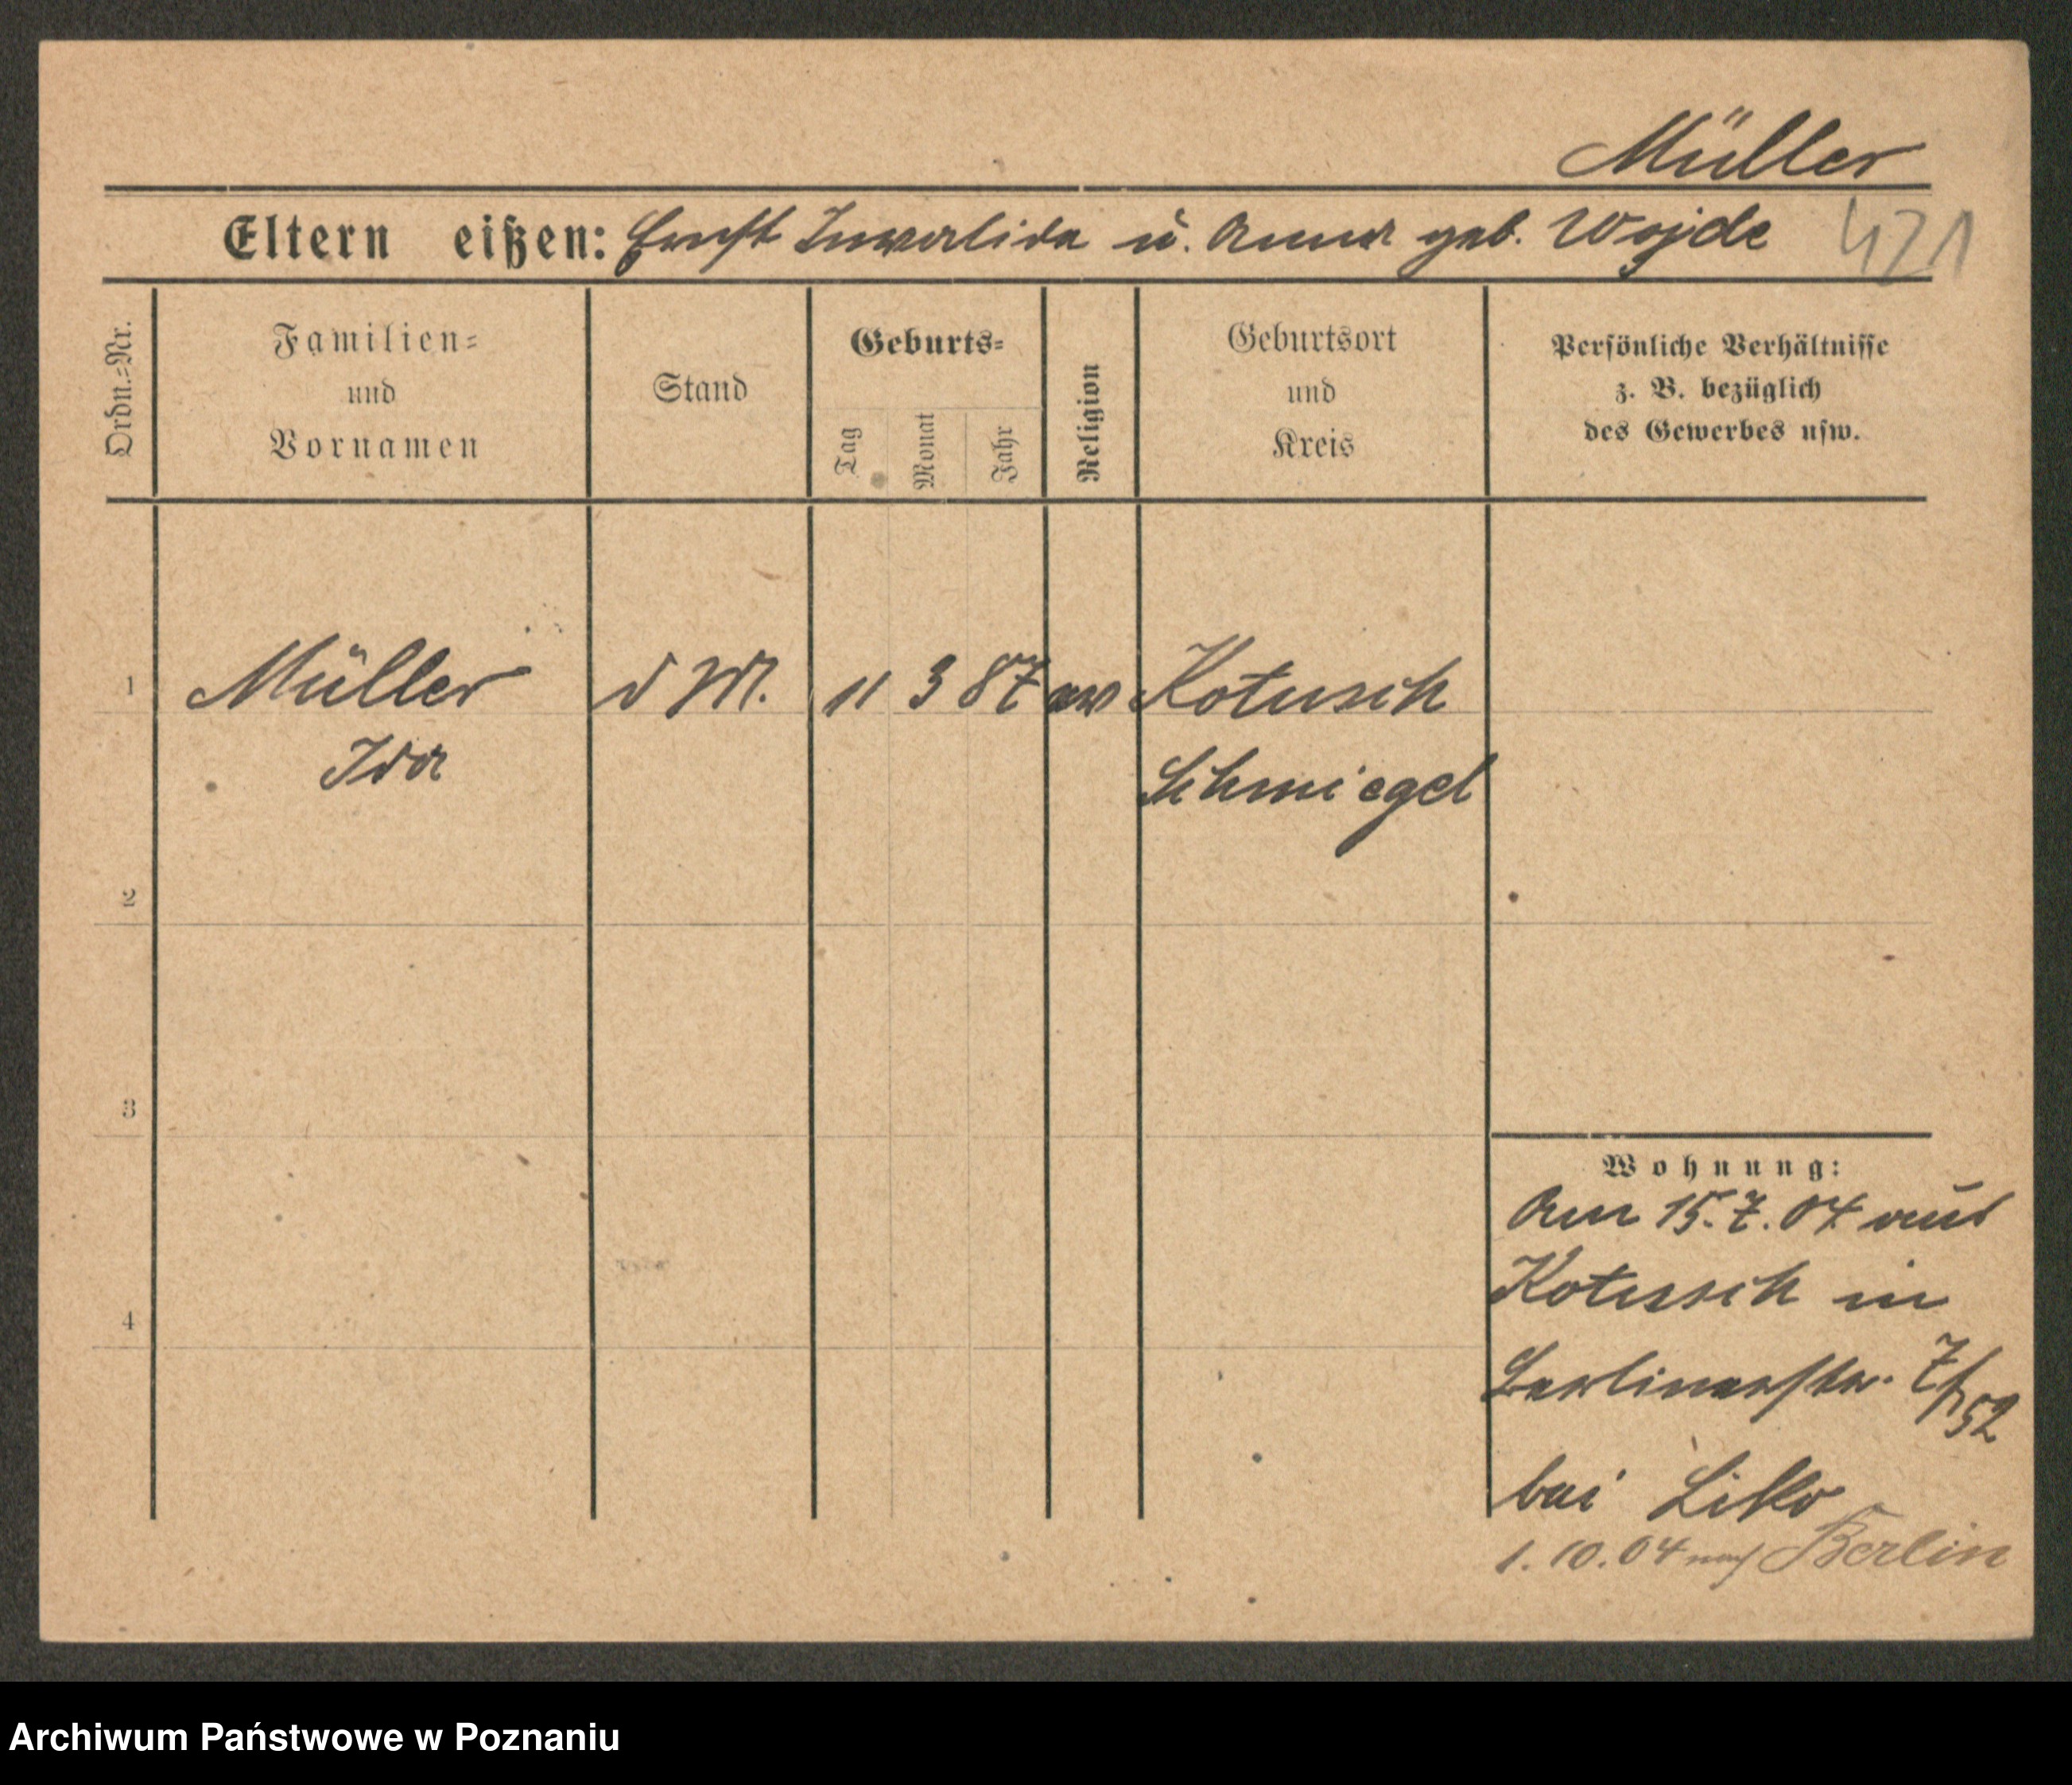 Müller
Eltern eißen: Ernst Invalide u. Anna geb. Wojde
421
Ordn.-Nr.
Familien-
und
Vornamen
Stand
Geburts-
Tag
Monat
Jahr
Religion
Geburtsort
und
Kreis
Persönliche Verhältnisse
z. B. bezüglich
des Gewerbes usw.
1 Müller d M. 11 3 87 ev Kotusch
Ida Schmiegel
2
3
4
Wohnung:
Am 15.7.04 aus
Kotusch in
Berlinerstr. 7/52
bei
1.10.04 nach Berlin
Archiwum Państwowe w Poznaniu